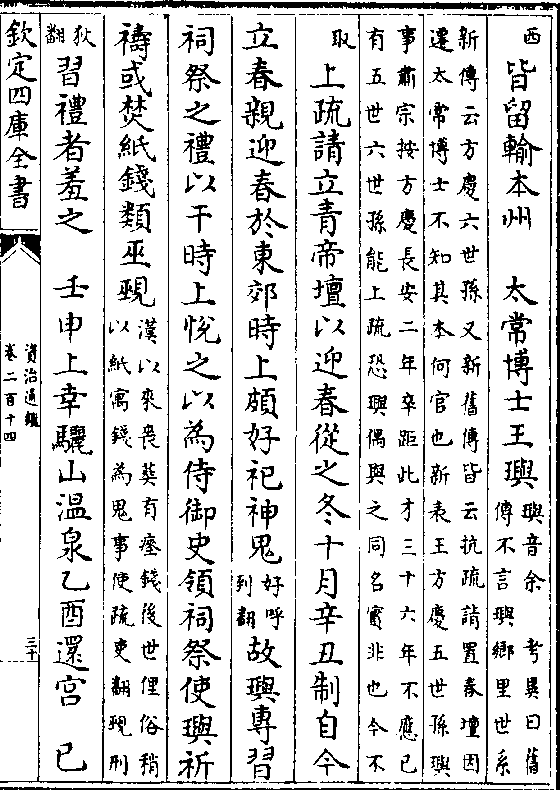 西皆留輸本州　太常博士王璵璵音余　考異曰舊
傳不言璵鄉里世系
新傳云方慶六世孫又新舊傳皆云抗疏請置春壇因
遷太常博士不知其本何官也新表王方慶五世孫璵
事肅宗按方慶長安二年卒距此才三十六年不應已
有五世六世孫能上疏恐璵偶與之同名實非也今不
取上疏請立青帝壇以迎春從之冬十月辛丑制自今
立春親迎春於東郊時上頗好祀神鬼好呼到翻故璵專習
祠祭之禮以干時上悅之以為侍御史領祠祭使璵祈
禱或焚紙錢類巫覡漢以來喪葬有瘞錢後世俚俗稍
以紙寓錢為鬼事使疏吏翻覡刑
狄翻習禮者羞之　壬申上幸驪山溫泉乙酉還宮　已
欽定四庫全書
資治通鑑
卷二百十四
三十